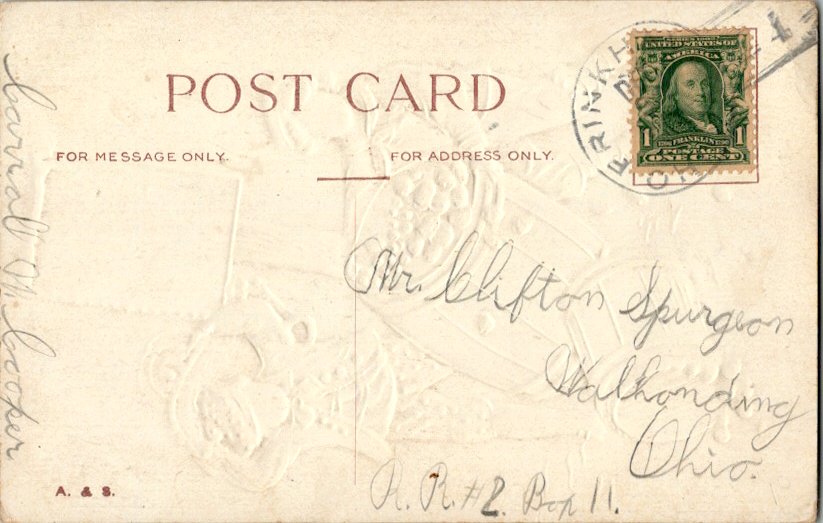 POST CARD
FOR MESSAGE ONLY.
FOR ADDRESS ONLY.
SERIES 1902
UNITED STATES OF
AMERICA
1 FRANKLIN 1
POSTAGE
ONE CENT
BRINKH
Carroll M. Cooper
Mr. Clifton Spurgeon
Walhonding
Ohio.
R. R. #2. Box 11.
A. & S.